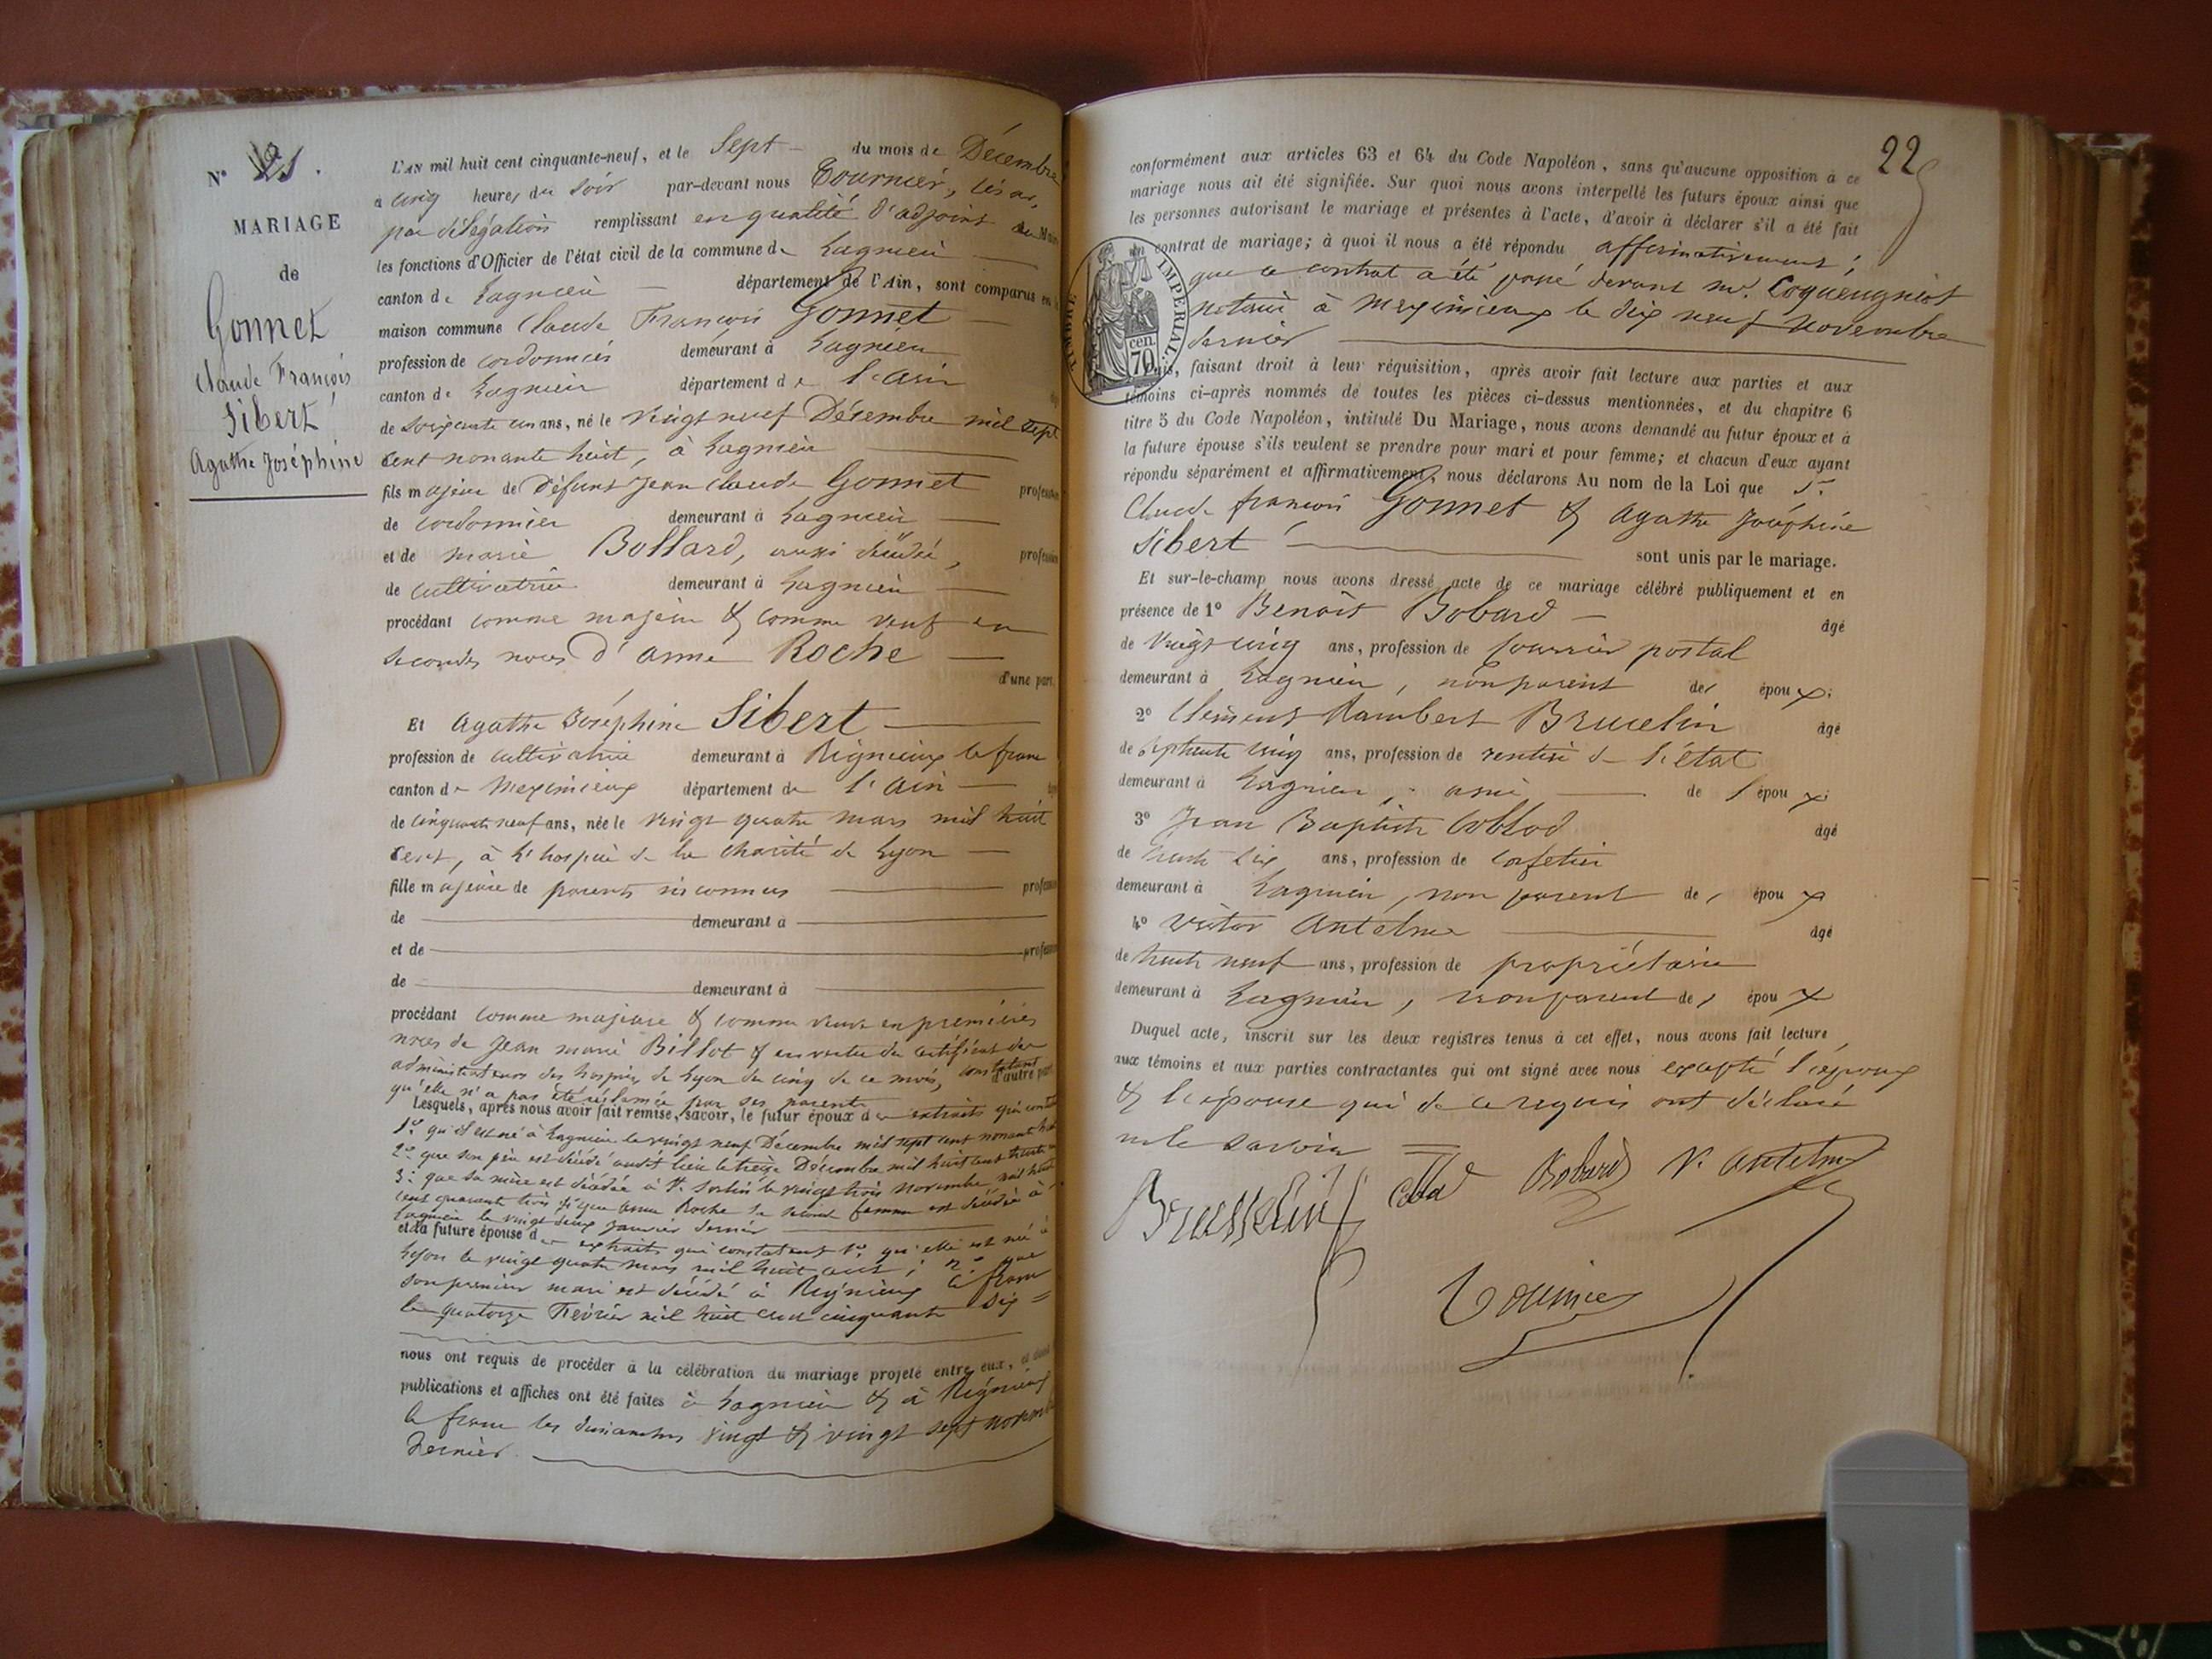 N° 21.
MARIAGE
de
Gonnet
Claude François
Sibert
Agathe Joséphine
L'AN mil huit cent cinquante-neuf, et le Sept du mois de Décembre
à cinq heures du soir par-devant nous Tournier, césar,
par délégation remplissant en qualité d'adjoint au Maire
les fonctions d'Officier de l'état civil de la commune de Lagnieu
canton de Lagnieu département de l'Ain, sont comparus en la
maison commune Claude François Gonnet
profession de cordonnier demeurant à Lagnieu
canton de Lagnieu département de l'ain
de soixante un ans, né le vingt neuf Décembre mil sept
cent nonante huit, à Lagnieu
fils majeur de défunt Jean Claude Gonnet profession
de cordonnier demeurant à Lagnieu
et de marie Bollard, aussi décédée, profession
de cultivatrice demeurant à Lagnieu
procédant comme majeur & comme veuf en
secondes noces d'anne Roche
d'une part.
Et Agathe Joséphine Sibert
profession de cultivatrice demeurant à Rignieux le franc
canton de Meximieux département de l'ain
de cinquante neuf ans, née le vingt quatre mars mil huit
cent, à l'hospice de la charité de Lyon
fille majeure de parents inconnus profession
de demeurant à
et de profession
de demeurant à
procédant comme majeure & comme veuve en premières
noces de Jean marie Billot & en vertu du certificat des
administrateurs des hospices de Lyon du cinq de ce mois, constatant
d'autre part.
qu'elle n'a pas été réclamée par ses parents
Lesquels, après nous avoir fait remise, savoir, le futur époux des extraits qui
1° qu'il est né à Lagnieu le vingt neuf Décembre mil sept cent nonante huit
2° que son père est décédé audit lieu le treize Décembre mil huit cent trente
3° que sa mère est décédée à St. Sorlin le vingt trois novembre mil huit
cent quarante trois & que anne Roche sa seconde femme est décédée à
Lagnieu le vingt deux janvier dernier
et la future épouse des extraits qui constatent 1° qu'elle est née à
Lyon le vingt quatre mars mil huit cent ; 2° que
son premier mari est décédé à Rignieux le franc
le quatorze Février mil huit cent cinquante six =
nous ont requis de procéder à la célébration du mariage projeté entre eux,
publications et affiches ont été faites à Lagnieu & à Rignieux
le franc les dimanches vingt & vingt sept novembre
dernier.
22
conformément aux articles 63 et 64 du Code Napoléon, sans qu'aucune opposition à ce
mariage nous ait été signifiée. Sur quoi nous avons interpellé les futurs époux ainsi que
les personnes autorisant le mariage et présentes à l'acte, d'avoir à déclarer s'il a été fait
un contrat de mariage; à quoi il nous a été répondu affirmativement ;
que ce contrat a été passé devant me. Coqueugniot
notaire à Meximieux le dix neuf novembre
dernier
TIMBRE IMPÉRIAL
70 cen.
Puis, faisant droit à leur réquisition, après avoir fait lecture aux parties et aux
témoins ci-après nommés de toutes les pièces ci-dessus mentionnées, et du chapitre 6
titre 5 du Code Napoléon, intitulé Du Mariage, nous avons demandé au futur époux et à
la future épouse s'ils veulent se prendre pour mari et pour femme; et chacun d'eux ayant
répondu séparément et affirmativement, nous déclarons Au nom de la Loi que Sr.
Claude françois Gonnet & agathe Joséphine
Sibert sont unis par le mariage.
Et sur-le-champ nous avons dressé acte de ce mariage célébré publiquement et en
présence de 1° Benoît Bobard âgé
de vingt cinq ans, profession de courrier postal
demeurant à Lagnieu, non parent des époux ;
2° Clément Rambert Brucelin âgé
de septante cinq ans, profession de rentier de l'état
demeurant à Lagnieu, ami de l'époux ;
3° Jean Baptiste Collod âgé
de trente six ans, profession de cafetier
demeurant à Lagnieu, non parent des époux
4° Victor Antelme âgé
de trente neuf ans, profession de propriétaire
demeurant à Lagnieu, non parent des époux
Duquel acte, inscrit sur les deux registres tenus à cet effet, nous avons fait lecture
aux témoins et aux parties contractantes qui ont signé avec nous excepté l'époux
& l'épouse qui de ce requis ont déclaré
ne le savoir
Brusselin Bobard V. antelme
Tournier